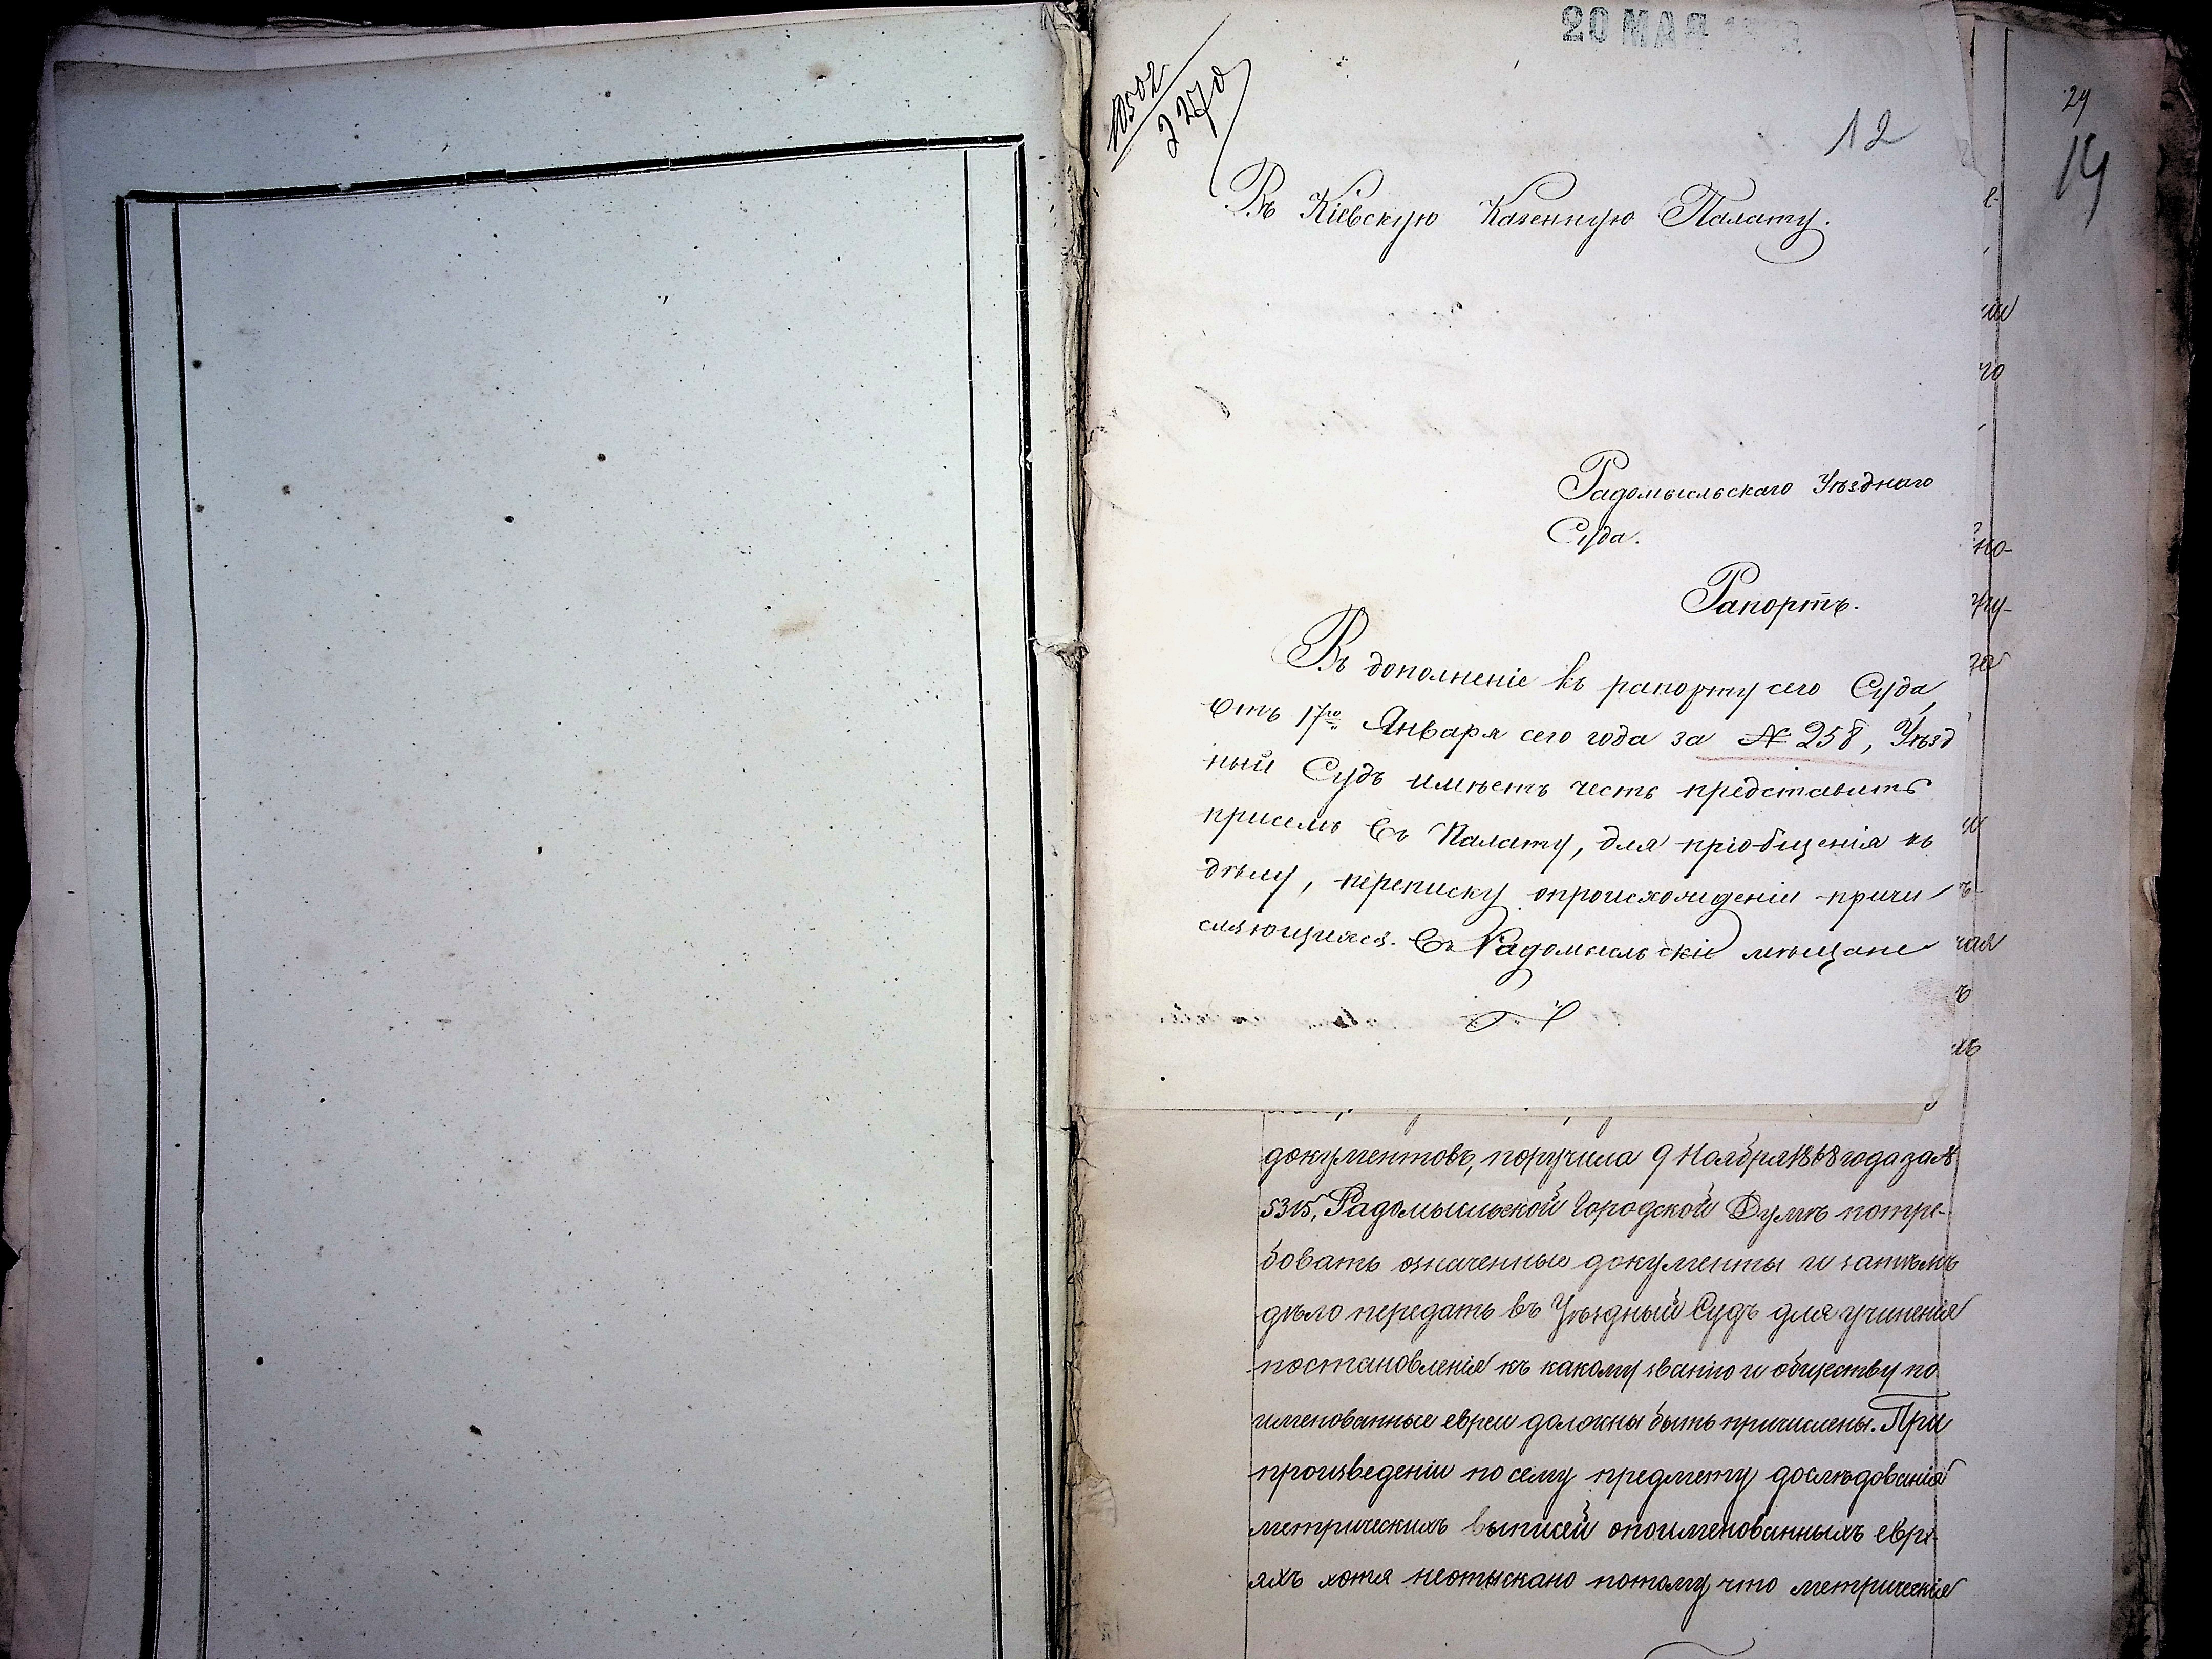 20 МАЯ
10502
2270
12
Въ Кіевскую Казенную Палату.
Радомысльскаго Уѣзднаго
Суда.
Рапортъ.
Въ дополненіе къ рапорту сего Суда,
отъ 17го Января сего года за № 258, Уѣзд
ный Судъ имѣетъ честь представить
присемъ въ Палату, для пріобщенія къ
дѣлу, переписку опроисхожденіи причи
сляющихся въ Радомысльскіе мѣщане
29
14
документовъ, поручила 9 Ноября 1868 года за №
5315, Радомысльской Городской Думѣ потре-
бовать означенные документы и затѣмъ
дѣло передать въ Уѣздный Судъ для учиненія
постановленія къ какому званію и обществу по
именованные евреи должны быть причислены. При
произведеніи по сему предмету дослѣдованія
метрическихъ выписей опоименованныхъ евре-
яхъ хотя неотыскано потому что метрическіе